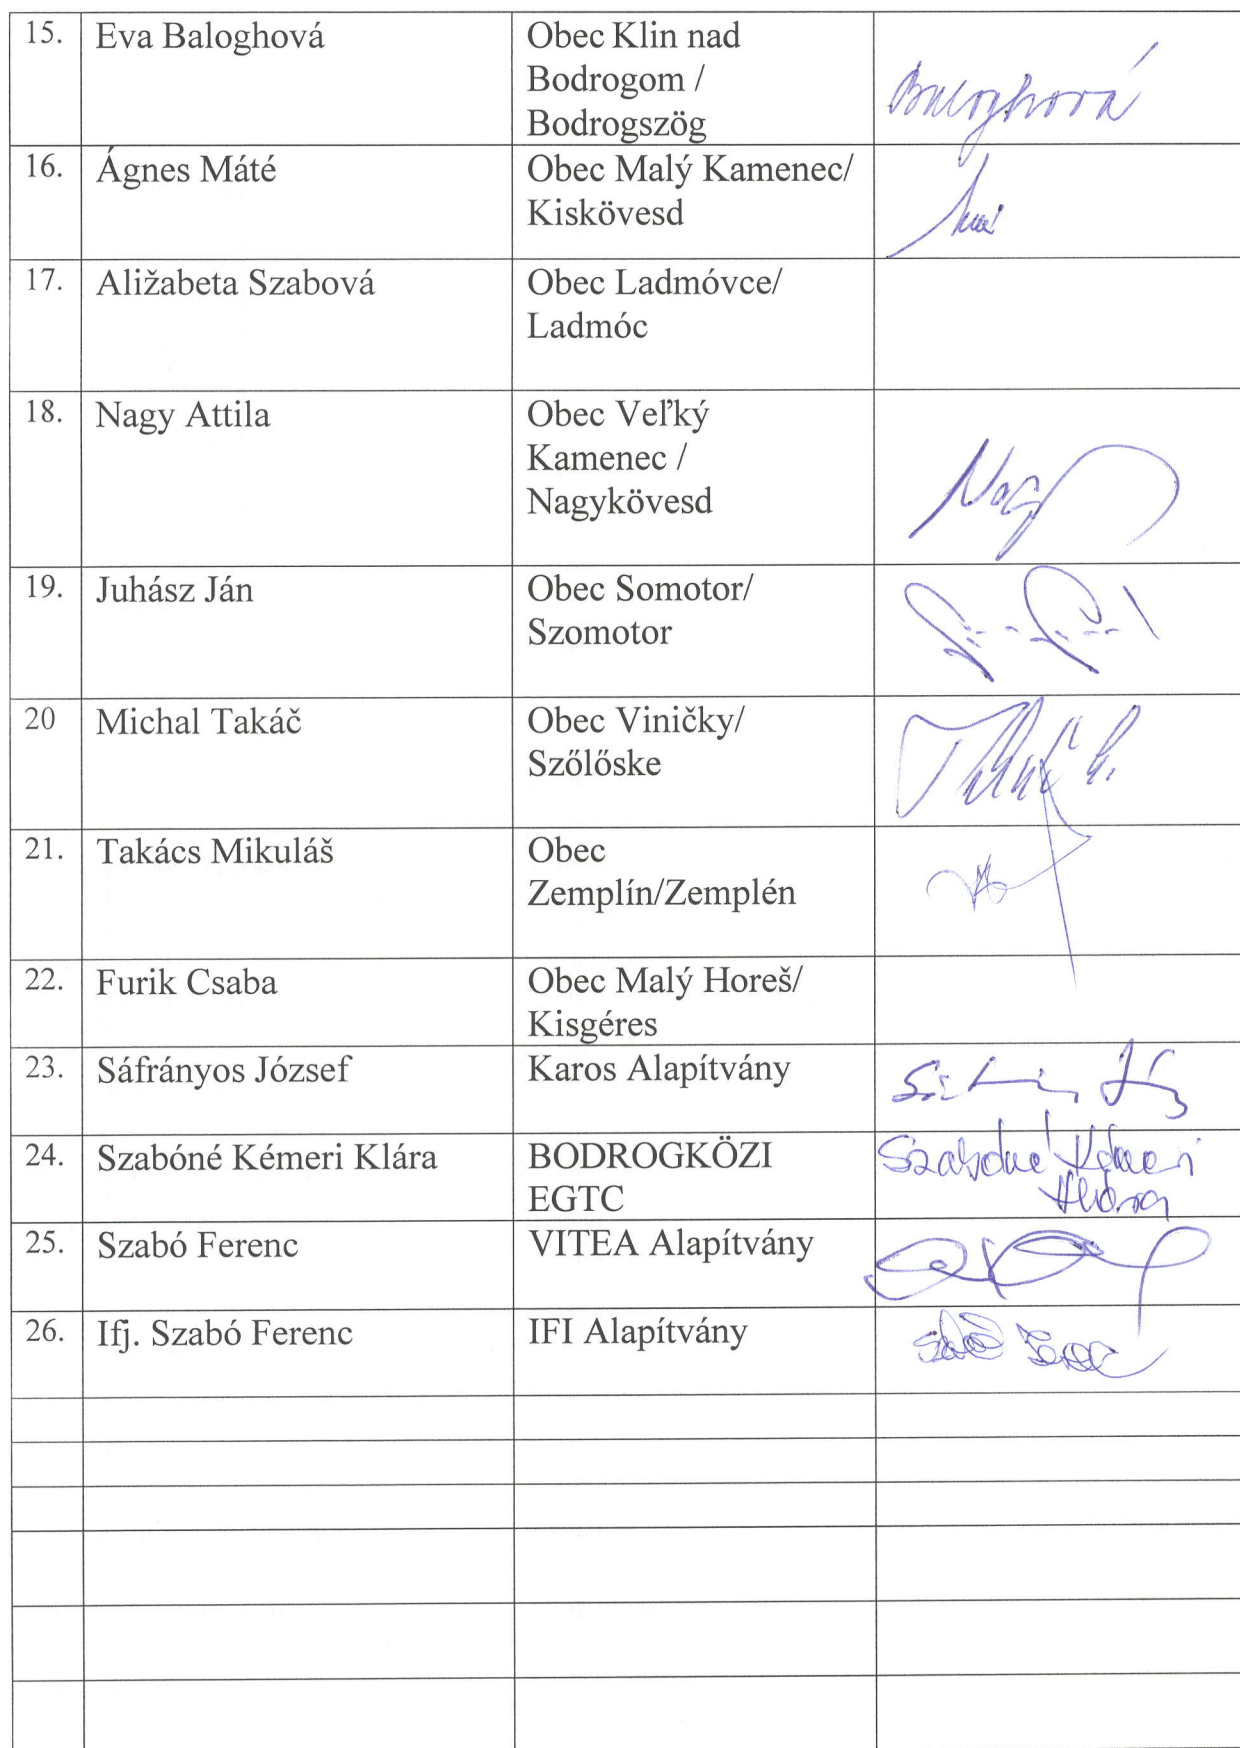 15. Eva Baloghová Obec Klin nad
Bodrogom /
Bodrogszög
Baloghová
16. Ágnes Máté Obec Malý Kamenec/
Kiskövesd
17. Aližabeta Szabová Obec Ladmóvce/
Ladmóc
18. Nagy Attila Obec Veľký
Kamenec /
Nagykövesd
Nagy
19. Juhász Ján Obec Somotor/
Szomotor
20 Michal Takáč Obec Viničky/
Szőlőske
21. Takács Mikuláš Obec
Zemplín/Zemplén
22. Furik Csaba Obec Malý Horeš/
Kisgéres
23. Sáfrányos József Karos Alapítvány
24. Szabóné Kémeri Klára BODROGKÖZI Szabóné Kémeri
EGTC Klára
25. Szabó Ferenc VITEA Alapítvány
26. Ifj. Szabó Ferenc IFI Alapítvány Szabó Ferenc